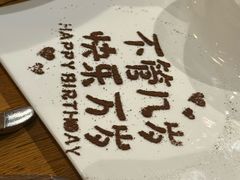 不管几岁
快乐万岁
HAPPY BIRTHDAY